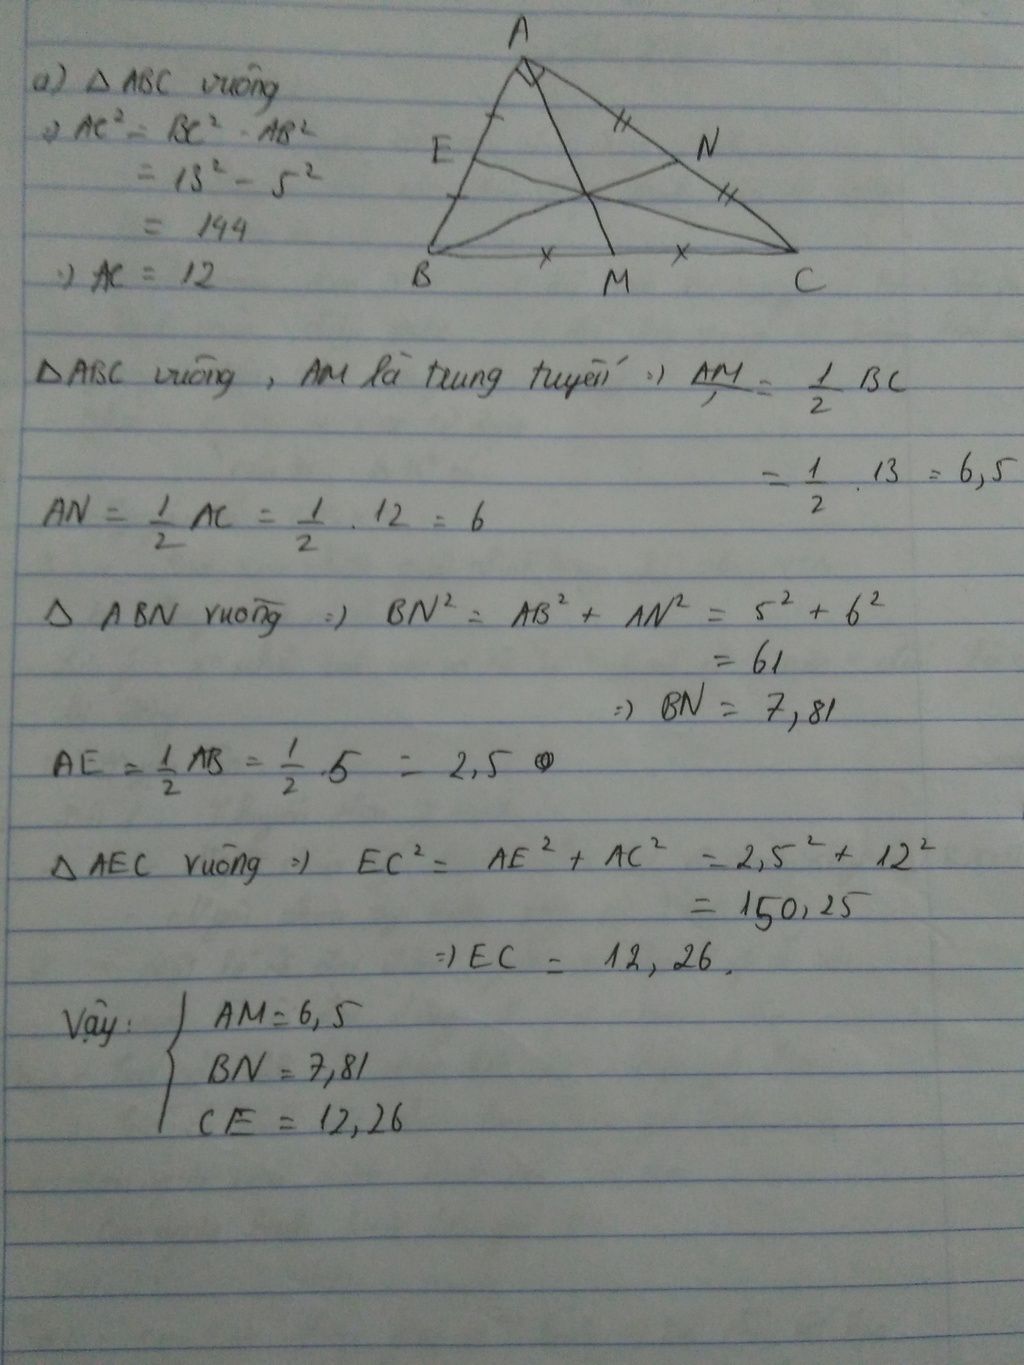 a) Δ ABC vuông
=) AC² = BC² - AB²
= 13² - 5²
= 144
=) AC = 12
A
E
N
B
M
C
Δ ABC vuông, AM là trung tuyến =) AM = 1/2 BC
= 1/2 . 13 = 6,5
AN = 1/2 AC = 1/2 . 12 = 6
Δ ABN vuông =) BN² = AB² + AN² = 5² + 6²
= 61
=) BN = 7,81
AE = 1/2 AB = 1/2 . 5 = 2,5
Δ AEC vuông =) EC² = AE² + AC² = 2,5² + 12²
= 150,25
=) EC = 12,26.
Vậy: { AM = 6,5
BN = 7,81
CE = 12,26